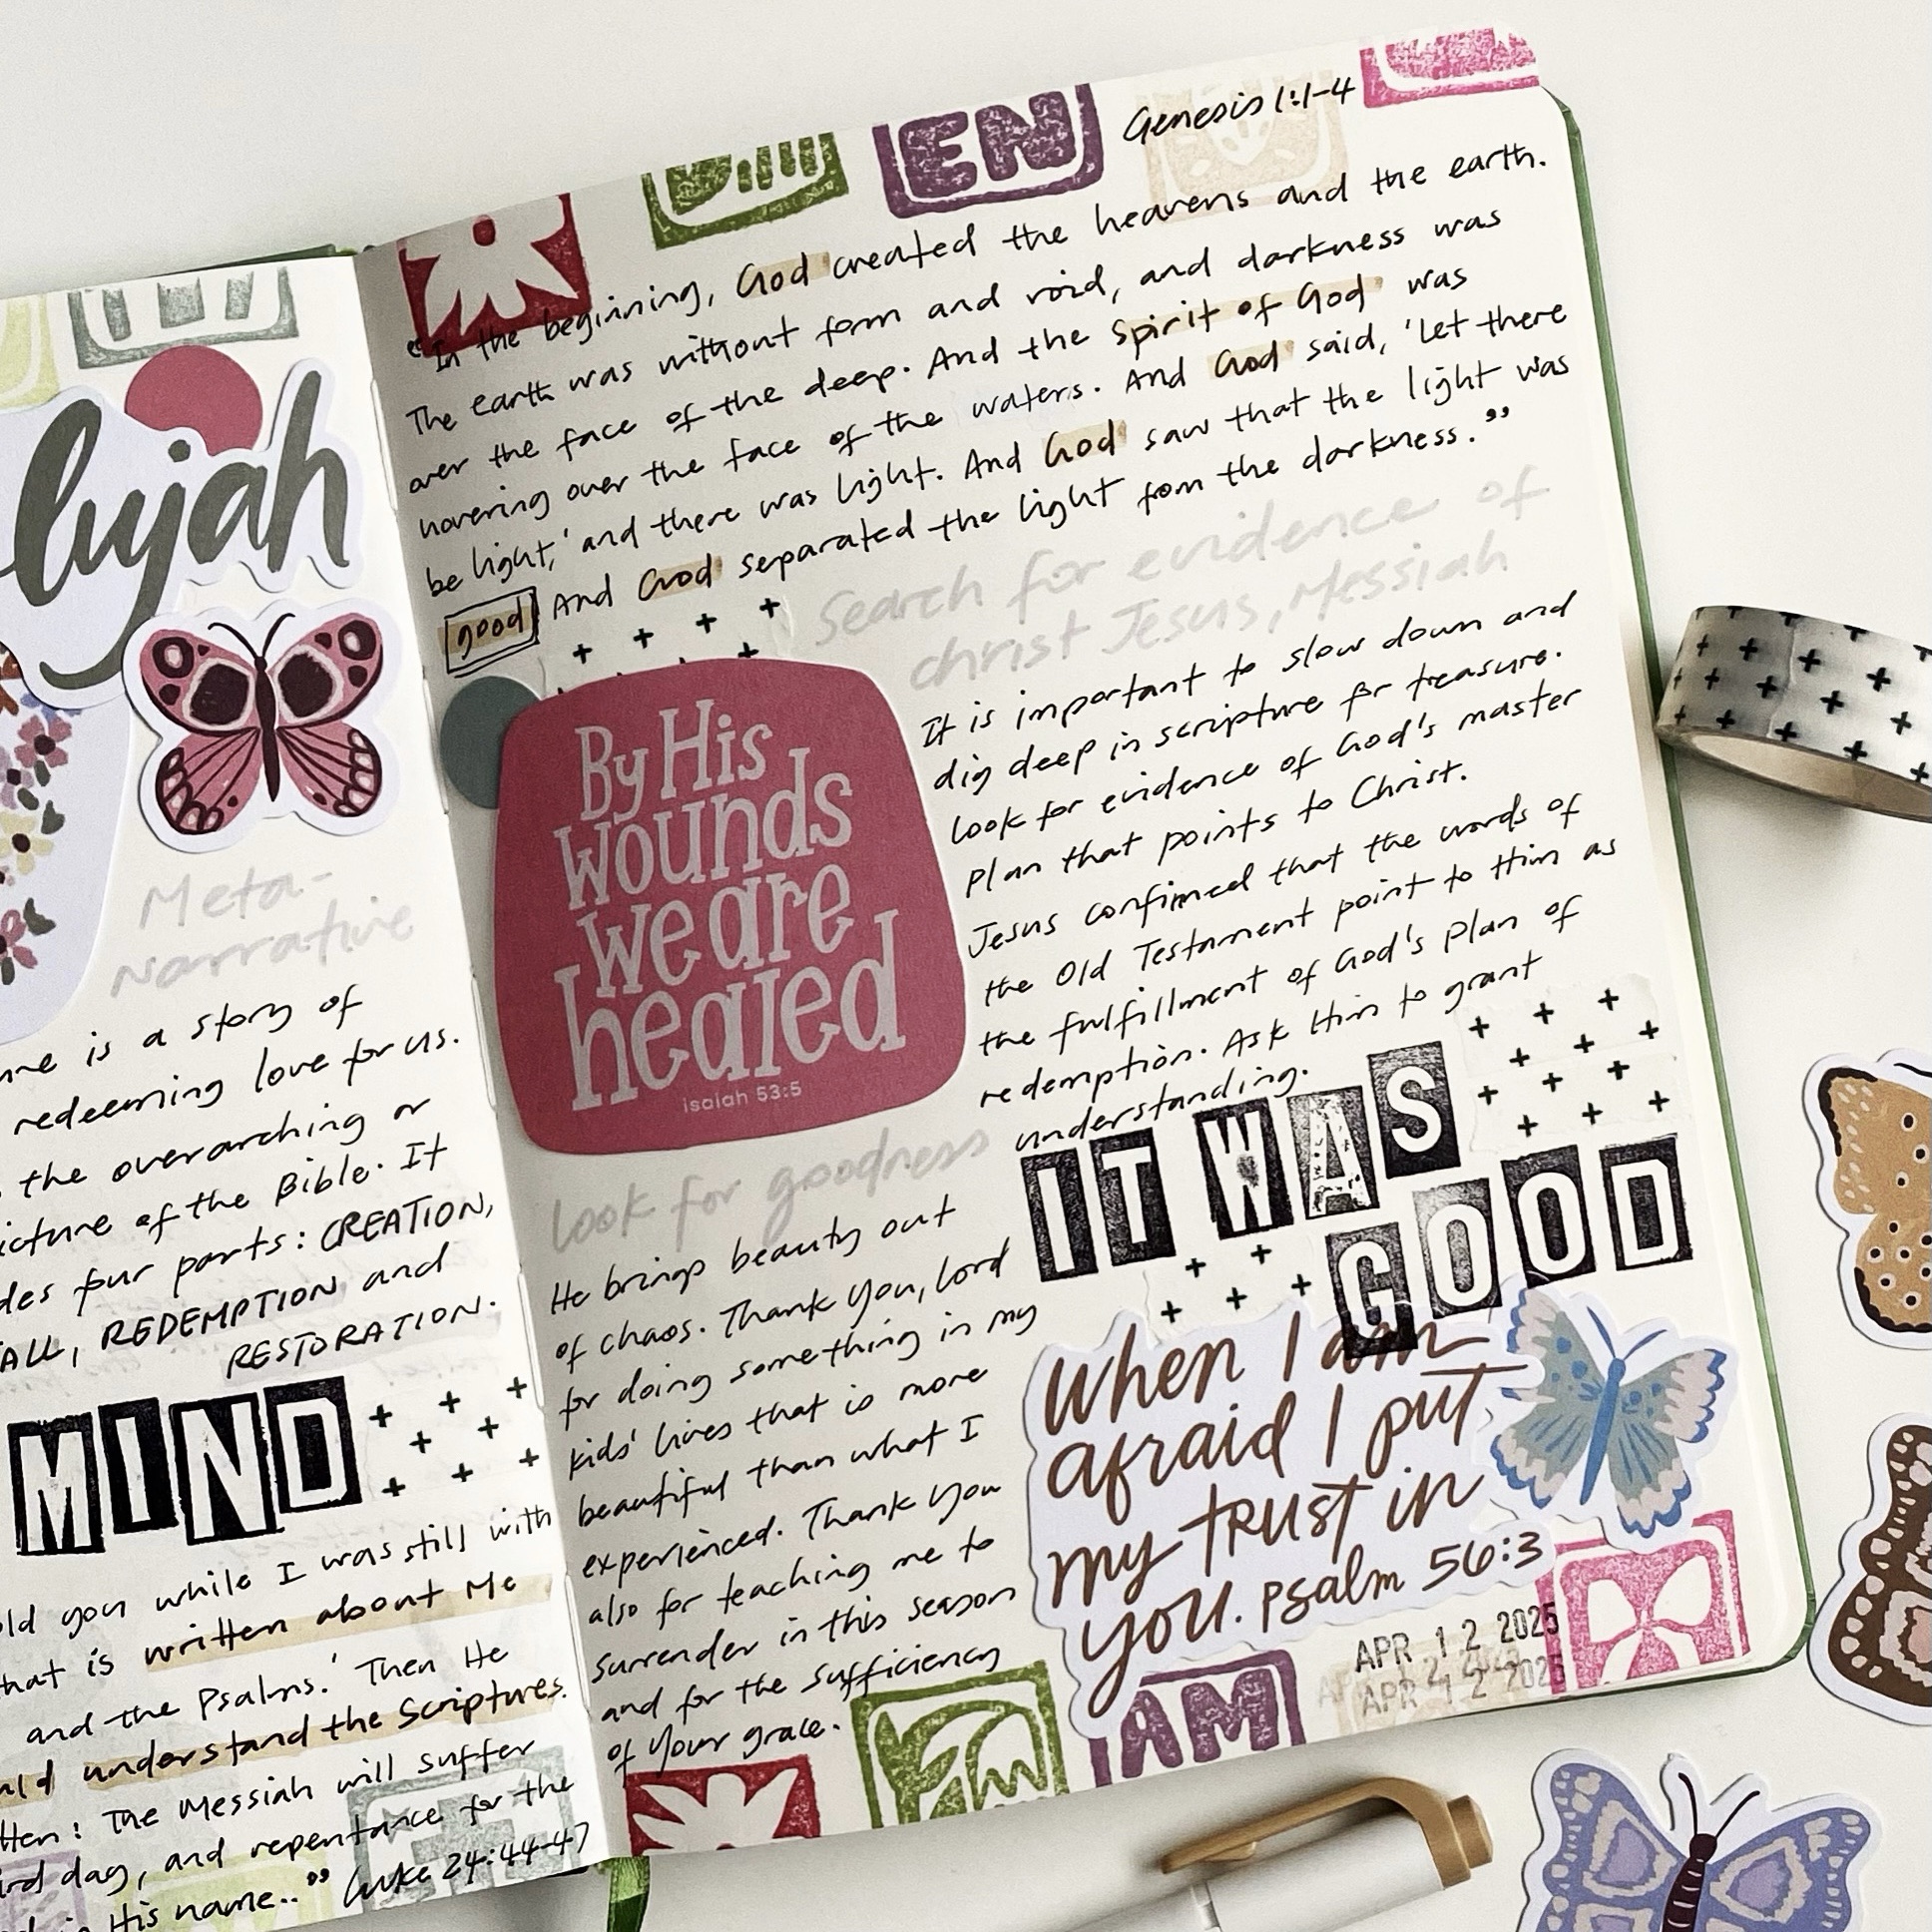 lujah
Meta-
Narrative
is a story of
redeeming love for us.
the overarching or
picture of the Bible. It
four parts: CREATION,
FALL, REDEMPTION and
RESTORATION.
MIND
told you while I was still with
that is written about Me
and the Psalms.' Then He
understand the Scriptures.
The Messiah will suffer
day, and repentance for the
in His name.." Luke 24:44-47
EN
Genesis 1:1-4
"In the beginning, God created the heavens and the earth.
The earth was without form and void, and darkness was
over the face of the deep. And the Spirit of God was
hovering over the face of the waters. And God said, 'Let there
be light,' and there was light. And God saw that the light was
good And God separated the light from the darkness."
Search for evidence of
christ Jesus, Messiah
It is important to slow down and
dig deep in scripture for treasure.
Look for evidence of God's master
plan that points to Christ.
Jesus confirmed that the words of
the Old Testament point to Him as
the fulfillment of God's plan of
redemption. Ask Him to grant
understanding.
By His
wounds
we are
healed
isaiah 53:5
look for goodness
He brings beauty out
of chaos. Thank You, Lord
for doing something in my
kids' lives that is more
beautiful than what I
experienced. Thank You
also for teaching me to
surrender in this season
and for the sufficiency
of Your grace.
IT WAS
GOOD
When I am
afraid I put
my trust in
you. Psalm 56:3
APR 12 2025
APR 12 2025
AM